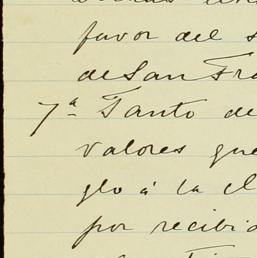 favor del s
de San Fra
7ª Tanto de
valores que
glo á la el
por recibid